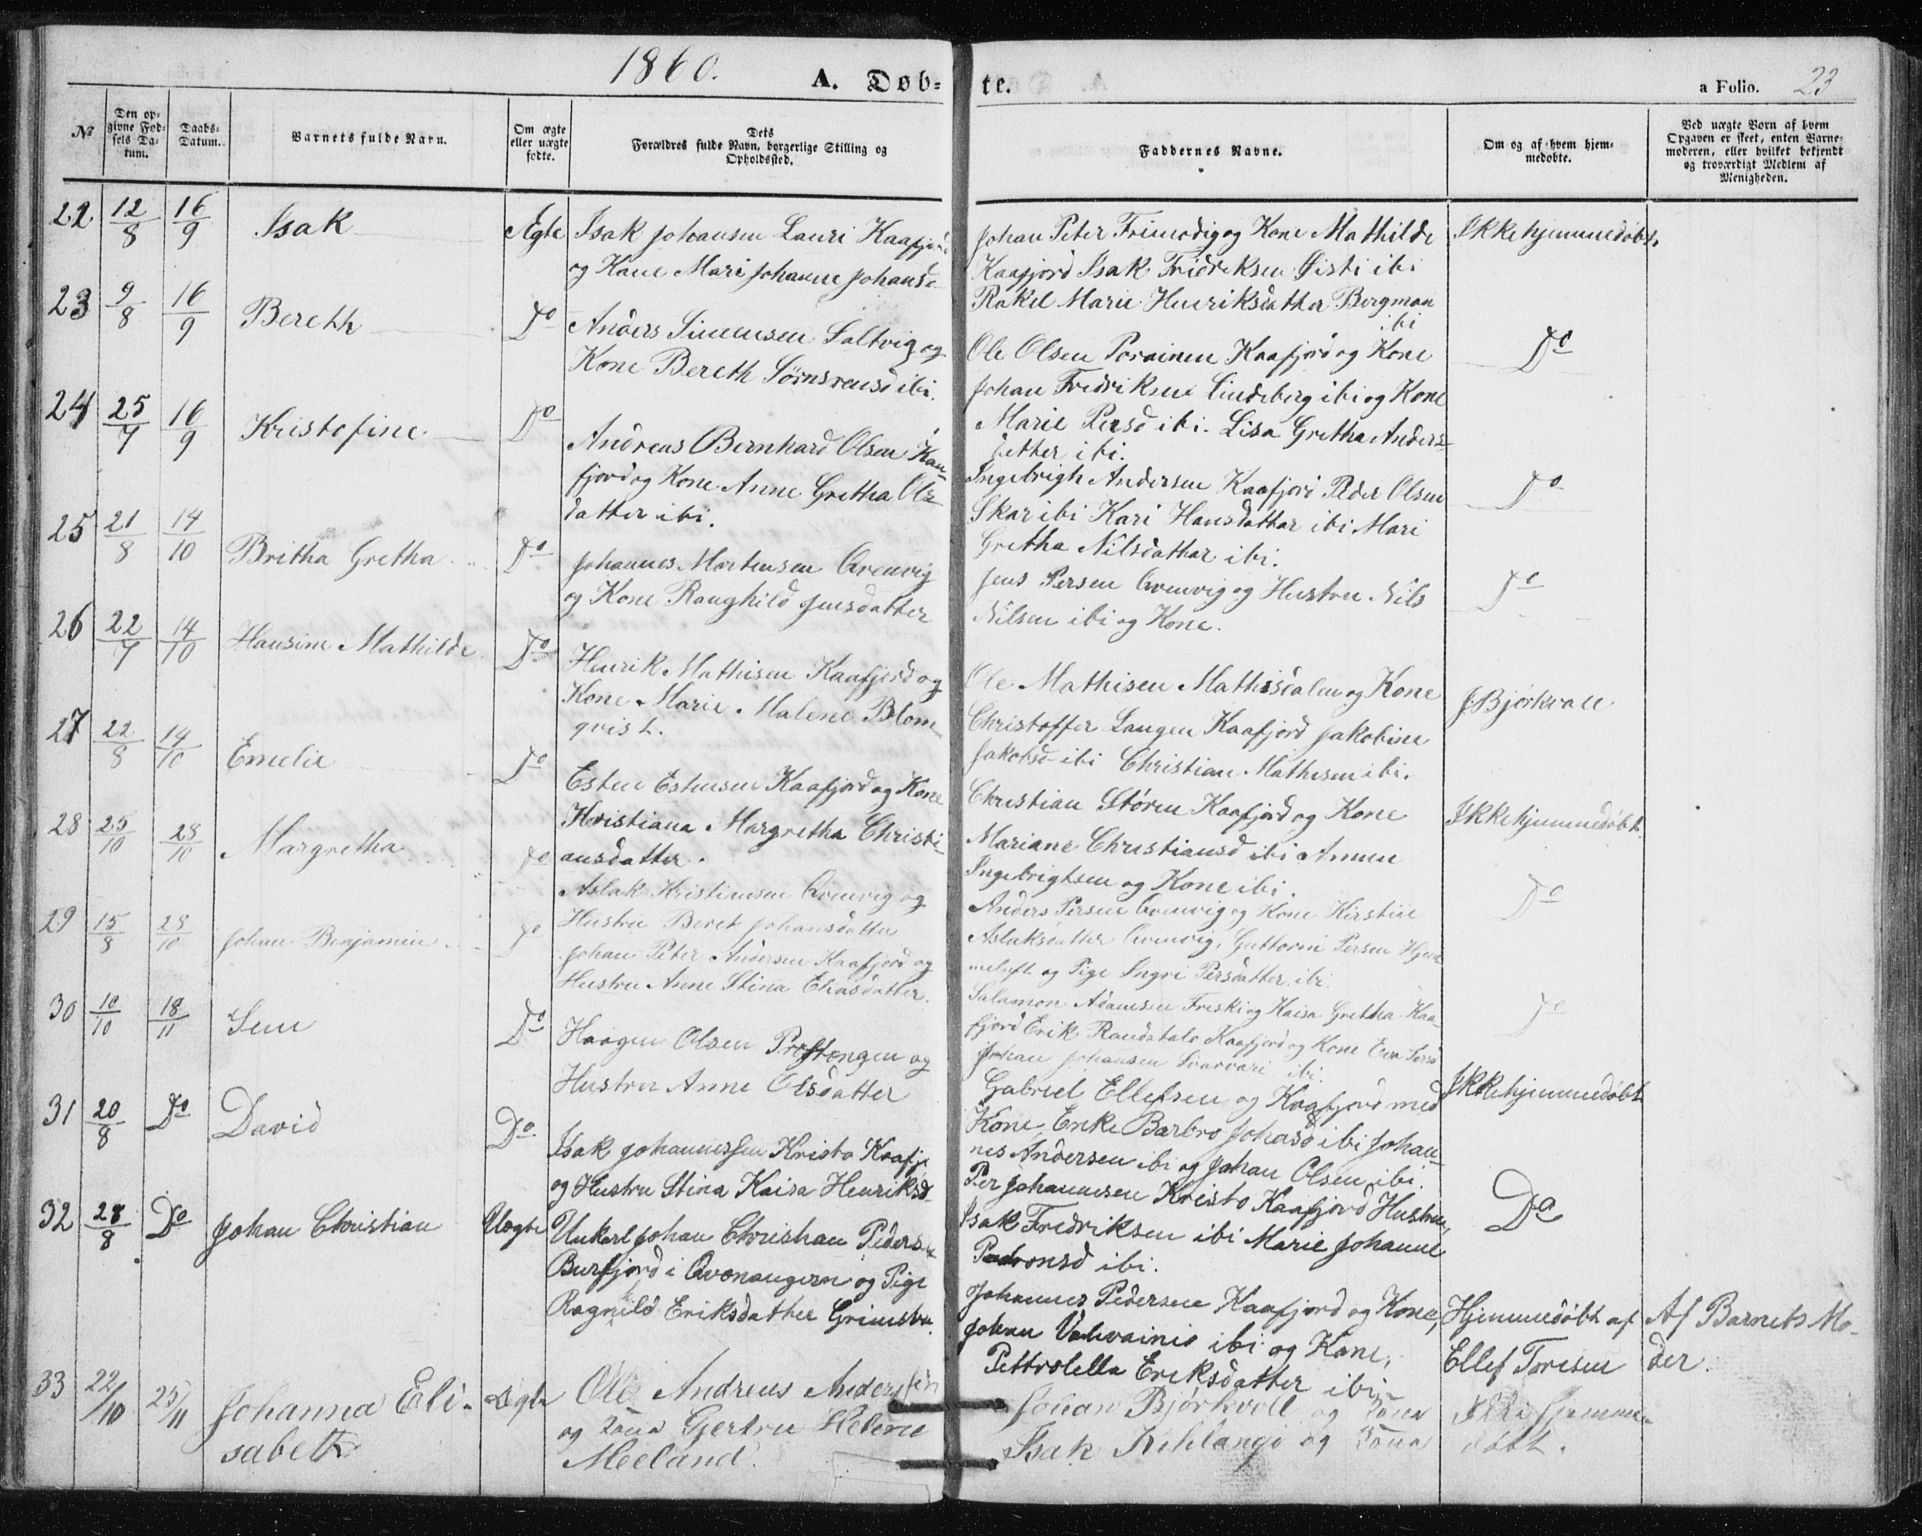 1860.
A. Døb-
te.
a Folio. 23
№
Den op-
givne Fød-
sels Da-
tum.
Daabs-
Datum.
Barnets fulde Navn.
Om ægte
eller uægte
fødte.
Dets
Forældres fulde Navn, borgerlige Stilling og
Opholdssted.
Faddernes Navne.
Om og af hvem hjem-
medøbte.
Ved uægte Børn af hvem
Opgaven er skeet, enten Barne-
moderen, eller hvilket bekjendt
og troværdigt Medlem af
Menigheden.
22 12/8 16/9 Isak Ægte
Isak Johansen Lauri Kaafjord
og Kone Mari Johanne Johansd
Johan Peter Frimodig og Kone Mathilde
Kaafjord Isak Fridriksen Sisti ibi
Rakel Marie Henriksdatter Bergman
ibi
Ikke hjemmedøbt.
23 9/8 16/9 Bereth Do
Anders Simensen Saltvig og
Kone Bereth Sørnsensd ibi.
Ole Olsen Porainen Kaafjord og Kone
Johan Fredriksen Lindeberg ibi og Kone
Marie Persd ibi. Lisa Gretha Anders-
datter ibi.
Do
24 25/7 16/9 Kristofine Do
Andreas Bernhard Olsen Kaa-
fjord og Kone Anne Gretha Ols-
datter ibi.
Ingebrigh Andersen Kaafjord Peder Olsen
Skar ibi Kari Hansdatter ibi Mari
Gretha Nilsdatter ibi.
Do
25 21/8 14/10 Britha Gretha Do
Johannes Mortensen Qvenvig
og Kone Ranghild Jensdatter
Jens Persen Qvenvig og Hustru Nils
Nilsen ibi og Kone.
Do
26 22/7 14/10 Hansine Mathilde Do
Henrik Mathisen Kaafjord og
Kone Marie Malene Blom-
qvist.
Ole Mathisen Mathisdalen og Kone
Christoffer Langen Kaafjord Jakobine
Jakobsd ibi Christian Mathisen ibi.
J. Bjørkvall
27 22/8 14/10 Emelie Do
Esten Estensen Kaafjord og Kone
Kristiana Margretha Christi-
ansdatter.
Christian Støren Kaafjord og Kone
Mariane Christiansd ibi Ammun
Ingebrigtsen og Kone ibi.
Ikke hjemmedøbt.
28 25/10 28/10 Margretha Do
Aslak Kristiansen Qvenvig og
Hustru Beret Johansdatter
Anders Persen Qvenvig og Kone Kirstine
Aslaksdatter Qvenvig, Guttorm Persen Hjem-
meluft og Pige Ingri Persdatter ibi.
Do
29 15/8 28/10 Johan Benjamin Do
Johan Peter Andersen Kaafjord og
Hustru Anne Stina Eliasdatter.
Salamon Adamsen Friski og Kaisa Gretha Kaa-
fjord Erik Randatalo Kaafjord og Kone Eva Persd
Johan Johansen Svarvari ibi.
Do
30 10/10 18/11 Do
Haagen Olsen Prestengen og
Hustru Anne Olsdatter
Gabriel Ellefsen og Kaafjord med
Kone, Enke Barbro Johansd ibi Johan-
nes Andersen ibi og Johan Olsen ibi.
Ikke hjemmedøbt
31 20/8 Do David Do
Isak Johannessen Kristo Kaafj
og Hustru Stina Kaisa Henriksd
Per Johannesen Kristo Kaafjord Hustru,
Isak Fredriksen ibi Marie Johanne
Pedronsd ibi.
Do
32 28/8 Do Johan Christian Uægte
Unkarl Johan Christian Pedersen
Burfjord i Qvænangen og Pige
Ragnild Eriksdatter
Johannes Pedersen Kaafjord og Kone,
Johan ibi og Kone,
Pettrolella Eriksdatter ibi
Hjemmedøbt af
Ellef Toresen
Af Barnets Mo-
der
33 22/10 25/11 Johanna Eli-
sabeth
Ægte
Ole Andreas Andersen
og Kona Gjertru Helene
Meeland.
Johan Bjørkvoll og Kona
Isak Kihlangi og Kona
Ikke hjemme-
døbt.